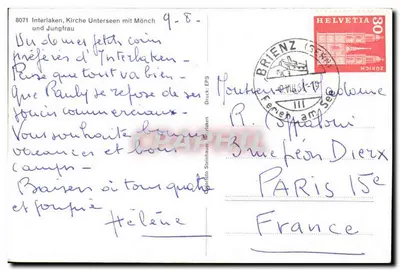 8071 Interlaken, Kirche Unterseen mit Mönch
und Jungfrau
9-8-
Un de mes petits coins
préférés d'Interlaken-
Puisque tout va bien-
que Pauly se repose de ses
soucis commerciaux-
Vous souhaite bonnes
vacances et bons
camps-
Baisers à tous quatre
et
Hélène
Druck: EPS
HELVETIA
30
ZÜRICH
BRIENZ (BERN)
III
Ferien am See
Monsieur Madame
R.
3 rue Léon Dierx
PARIS 15e
France